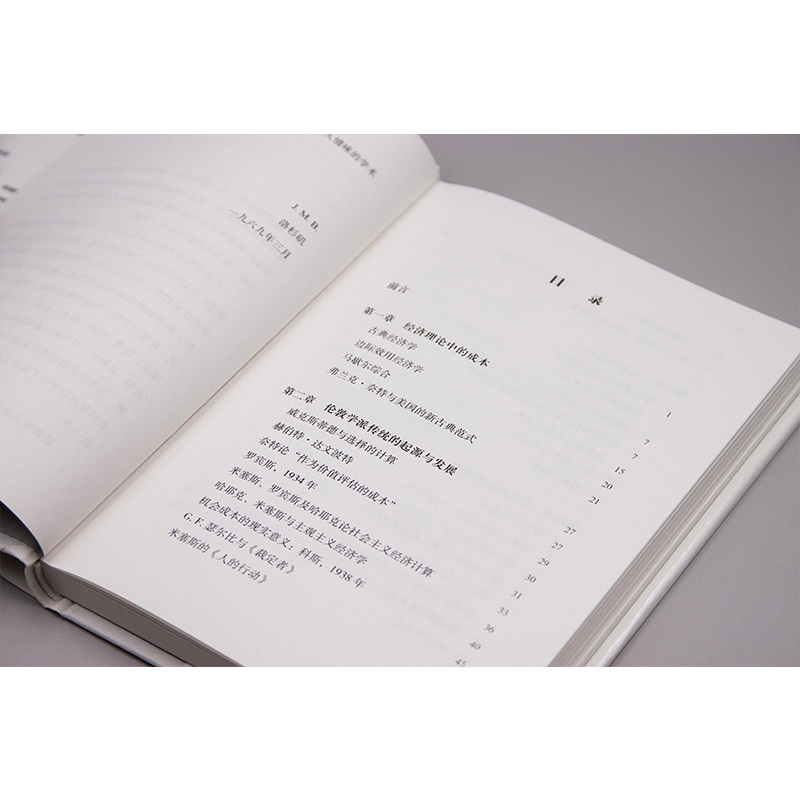 人情味的学术
J. M. B.
洛杉矶
一九六九年三月
目 录
前言 1
第一章 经济理论中的成本 7
古典经济学 7
边际效用经济学 15
马歇尔综合 20
弗兰克·奈特与美国的新古典范式 21
第二章 伦敦学派传统的起源与发展 27
威克斯蒂德与选择的计算 27
赫伯特·达文波特 29
奈特论“作为价值评估的成本” 30
罗宾斯，1934年 31
米塞斯、罗宾斯及哈耶克论社会主义经济计算 33
哈耶克、米塞斯与主观主义经济学 36
机会成本的现实意义：科斯，1938年 40
G. F. 瑟尔比与《裁定者》 45
米塞斯的《人的行动》